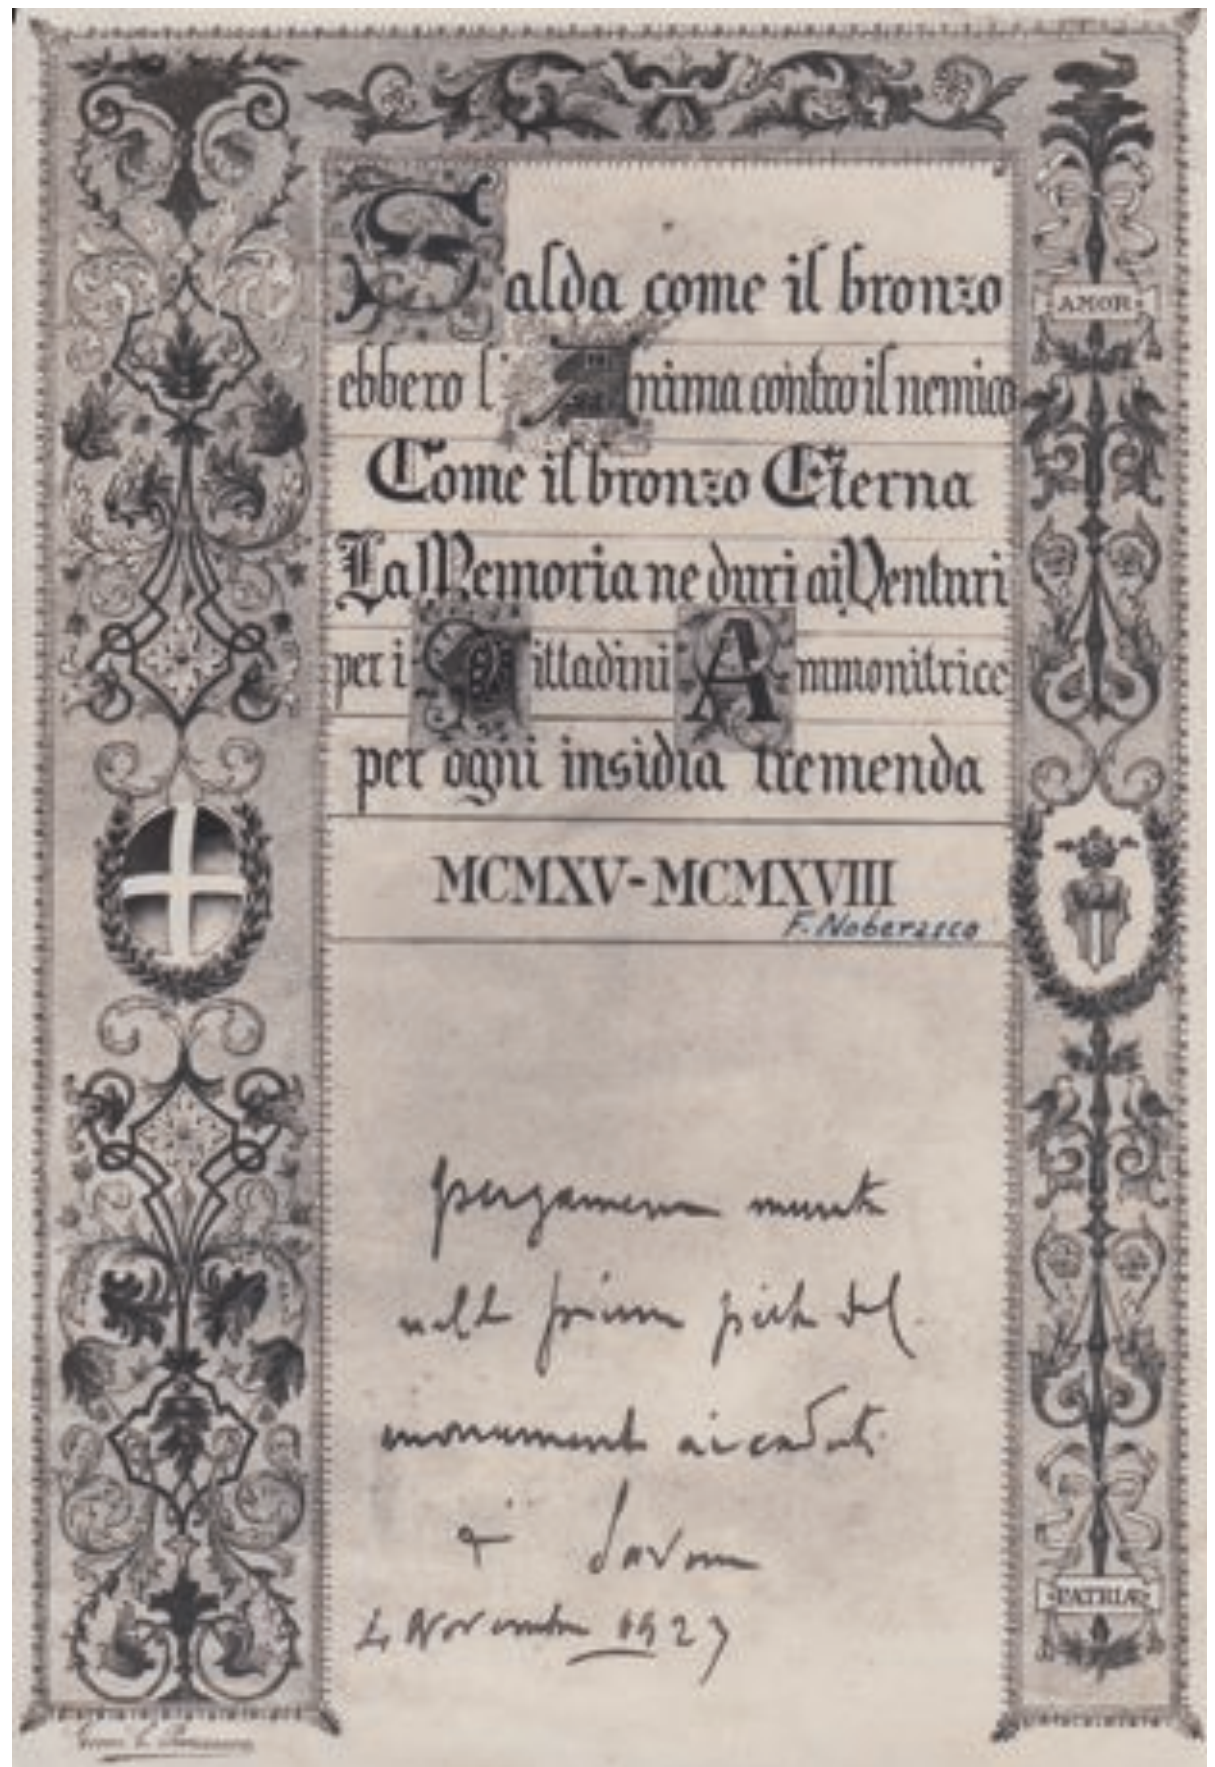 Salda come il bronzo
ebbero l'Anima contro il nemico
Come il bronzo Eterna
La Memoria ne duri ai Venturi
per i Cittadini Ammonitrice
per ogni insidia tremenda
MCMXV-MCMXVIII
F. Noberasco
AMOR
PATRIAE
pergamena murata
nella prima pietra del
monumento ai caduti
di Savona
4 Novembre 1923